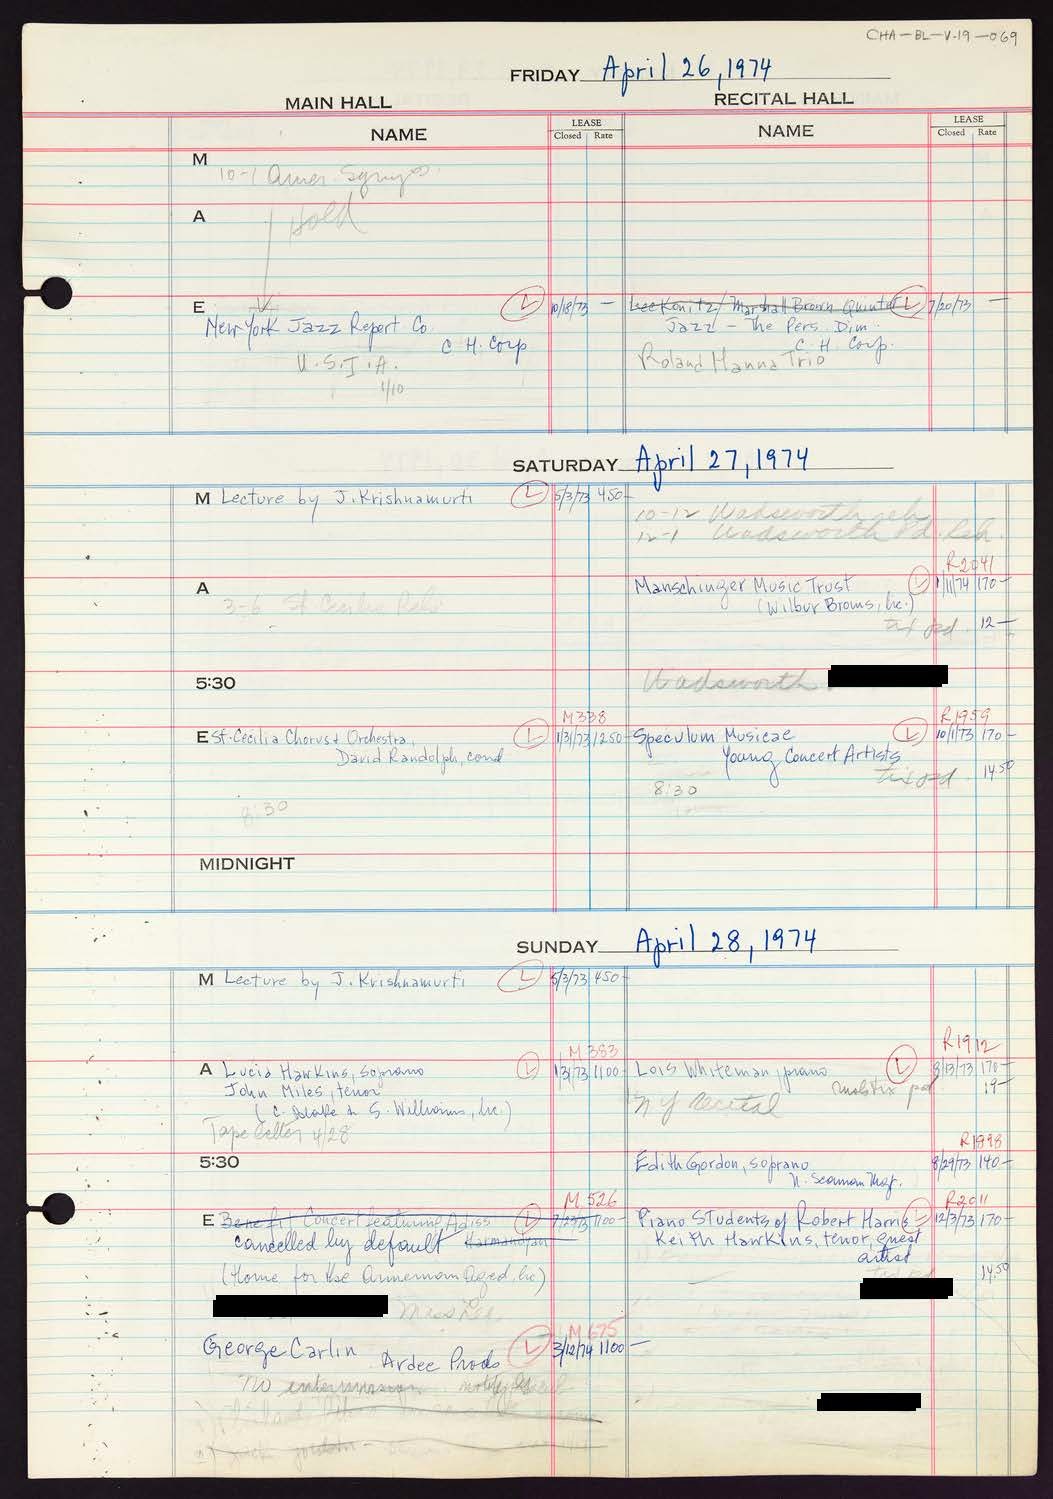 CHA-BL-V-19-069
FRIDAY April 26, 1974
MAIN HALL RECITAL HALL
NAME LEASE Closed Rate NAME LEASE Closed Rate
M
10-1 Amer Symp
A
Hold
E L 10/18/73 — Lee Konitz/Marshall Brown Quintet L 7/20/73 —
New York Jazz Repert Co. Jazz - The Pers. Dim.
C H. Corp C. H. Corp.
U.S.I.A. Roland Hanna Trio
1/10
SATURDAY April 27, 1974
M Lecture by J. Krishnamurti L 5/3/73 450-
10-12 Wadsworth reh
12-1 Wadsworth Pd. Reh.
R2041
A Manschinger Music Trust L 1/11/74 170-
3-6 St Cecilia Reh. (Wilbur Broms, Inc.)
tix pd. 12-
5:30 Wadsworth
M338 R1959
E St. Cecilia Chorus & Orchestra, L 1/31/73 1250- Speculum Musicae L 10/1/73 170-
David Randolph, cond Young Concert Artists
tix pd. 14.50
8:30 8:30
MIDNIGHT
SUNDAY April 28, 1974
M Lecture by J. Krishnamurti L 5/3/73 450-
M383 R1912
A Lucia Hawkins, soprano L 1/3/73 1100- Lois Whiteman, piano L 8/13/73 170-
John Miles, tenor tix pd 19-
& S. Williams, Inc.) NY recital
Tape letter 4/28
R1898
5:30 Edith Gordon, soprano 8/29/73 140-
N. Seaman Mgt.
M526 R2011
E Benefit Concert featuring Adiss L 7/23/73 1100- Piano Students of Robert Harris L 12/3/73 170-
cancelled by default Karmandyan Keith Hawkins, tenor, guest
artist
(Home for the Armenian Aged, Inc) tix pd 14.50
Miss
M675
George Carlin Ardee Prods L 3/12/74 1100-
No intermission notify